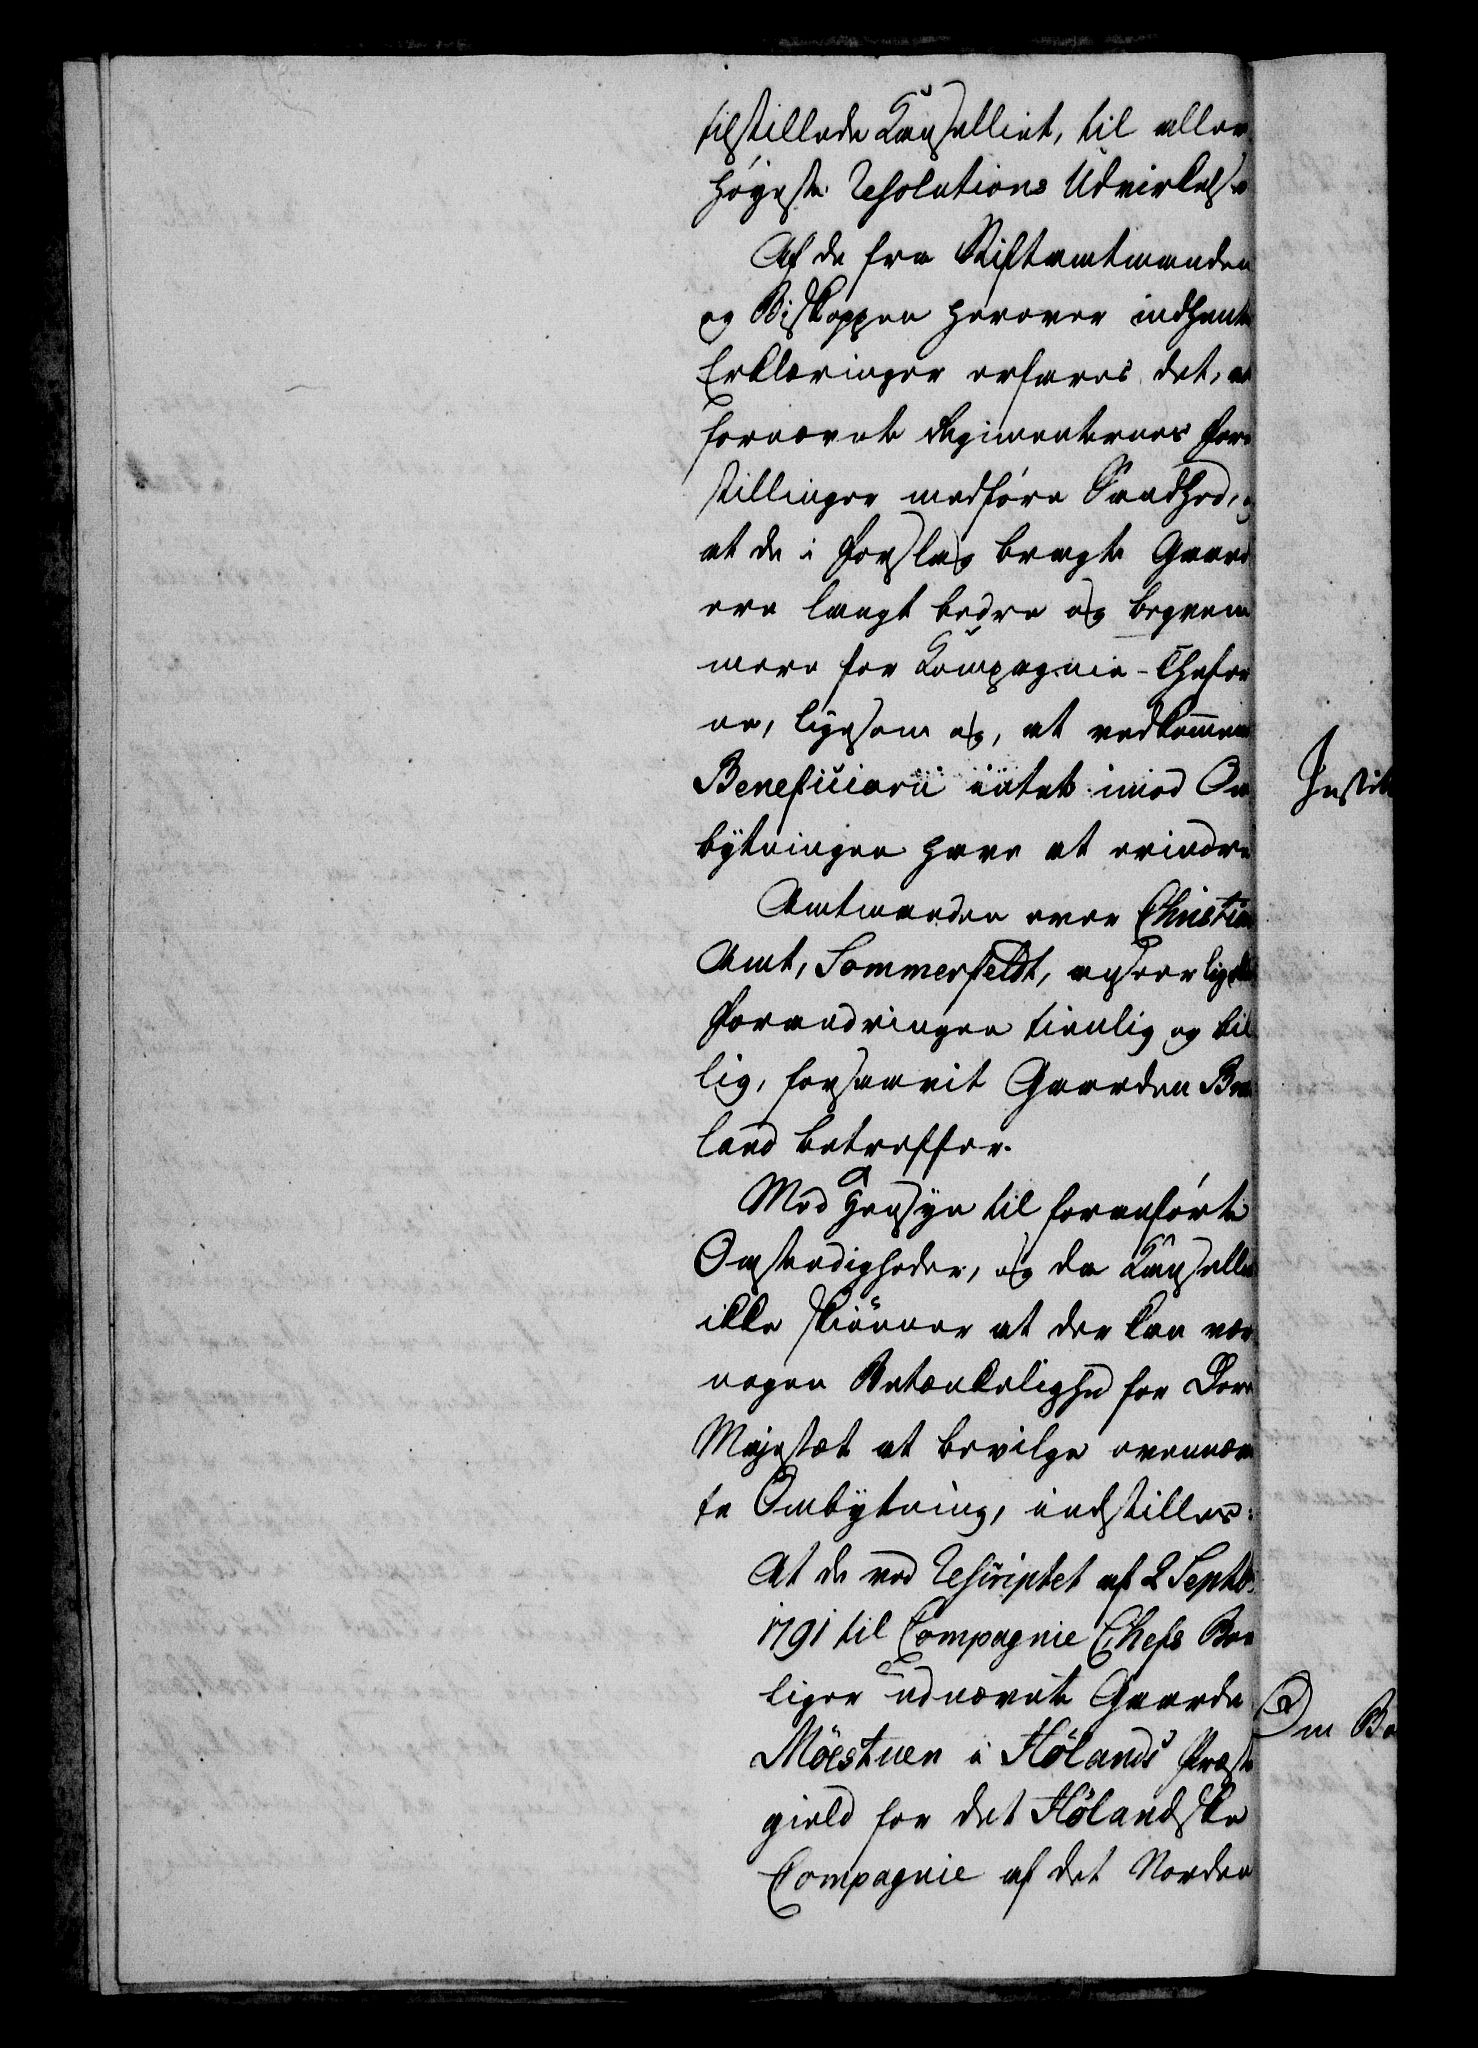 tilstillede Kanselliet, til aller
høyeste Resolutions Udvirkelse
Af de fra Stiftamtmanden
og Biskoppen herover indhente
Erklæringer erfares det, at
fornævnte Regimenternes Fore
stillinger medføre Sandhed, og
at de i Forslag bragte Gaard
ere langt bedre og beqvem
mere for Kompagnie-Chefer
ne, ligesom og, at vedkommen
Beneficiarii intet imod Om
bytningen have at erindre
Amtmanden over Christian
Amt, Sommerfeldt, anseer lige
Forandringen tienlig og bil
lig, forsaavit Gaarden
land betreffer.
Med Hensyn til foranførte
Omstændigheder, og da Kanselliet
ikke skiønner at der kan vær
nogen Betænkelighed for Dere
Majestæt at bevilge ovennævn
te Ombytning, indstilles:
At de ved Rescriptet af 2 Septb:
1791 til Compagnie Chefs Boe
liger udnævnte Gaarde
Möestuen i Hölands Præste
gield for det Hölandske
Compagnie af det Norden
Om